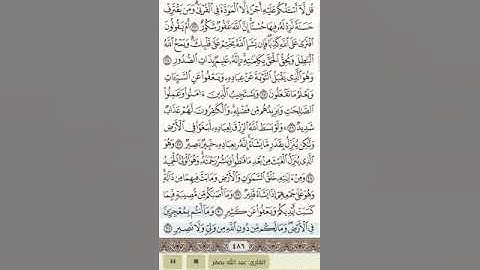 قُل لَّآ أَسْـَٔلُكُمْ عَلَيْهِ أَجْرًا إِلَّا ٱلْمَوَدَّةَ فِى ٱلْقُرْبَىٰ ۗ وَمَن يَقْتَرِفْ
حَسَنَةً نَّزِدْ لَهُۥ فِيهَا حُسْنًا ۚ إِنَّ ٱللَّهَ غَفُورٌ شَكُورٌ ٢٣ أَمْ يَقُولُونَ
ٱفْتَرَىٰ عَلَى ٱللَّهِ كَذِبًا ۖ فَإِن يَشَإِ ٱللَّهُ يَخْتِمْ عَلَىٰ قَلْبِكَ ۗ وَيَمْحُ ٱللَّهُ
ٱلْبَـٰطِلَ وَيُحِقُّ ٱلْحَقَّ بِكَلِمَـٰتِهِۦٓ ۚ إِنَّهُۥ عَلِيمٌۢ بِذَاتِ ٱلصُّدُورِ ٢٤
وَهُوَ ٱلَّذِى يَقْبَلُ ٱلتَّوْبَةَ عَنْ عِبَادِهِۦ وَيَعْفُوا۟ عَنِ ٱلسَّيِّـَٔاتِ
وَيَعْلَمُ مَا تَفْعَلُونَ ٢٥ وَيَسْتَجِيبُ ٱلَّذِينَ ءَامَنُوا۟ وَعَمِلُوا۟
ٱلصَّـٰلِحَـٰتِ وَيَزِيدُهُم مِّن فَضْلِهِۦ ۚ وَٱلْكَـٰفِرُونَ لَهُمْ عَذَابٌ
شَدِيدٌ ٢٦ وَلَوْ بَسَطَ ٱللَّهُ ٱلرِّزْقَ لِعِبَادِهِۦ لَبَغَوْا۟ فِى ٱلْأَرْضِ
وَلَـٰكِن يُنَزِّلُ بِقَدَرٍ مَّا يَشَآءُ ۚ إِنَّهُۥ بِعِبَادِهِۦ خَبِيرٌۢ بَصِيرٌ ٢٧ وَهُوَ
ٱلَّذِى يُنَزِّلُ ٱلْغَيْثَ مِنۢ بَعْدِ مَا قَنَطُوا۟ وَيَنشُرُ رَحْمَتَهُۥ ۚ وَهُوَ ٱلْوَلِىُّ ٱلْحَمِيدُ
٢٨ وَمِنْ ءَايَـٰتِهِۦ خَلْقُ ٱلسَّمَـٰوَٰتِ وَٱلْأَرْضِ وَمَا بَثَّ فِيهِمَا مِن دَآبَّةٍ ۚ
وَهُوَ عَلَىٰ جَمْعِهِمْ إِذَا يَشَآءُ قَدِيرٌ ٢٩ وَمَآ أَصَـٰبَكُم مِّن مُّصِيبَةٍ فَبِمَا
كَسَبَتْ أَيْدِيكُمْ وَيَعْفُوا۟ عَن كَثِيرٍ ٣٠ وَمَآ أَنتُم بِمُعْجِزِينَ
فِى ٱلْأَرْضِ ۖ وَمَا لَكُم مِّن دُونِ ٱللَّهِ مِن وَلِىٍّ وَلَا نَصِيرٍ ٣١
٤٨٦
القارئ: عبد الله بصفر